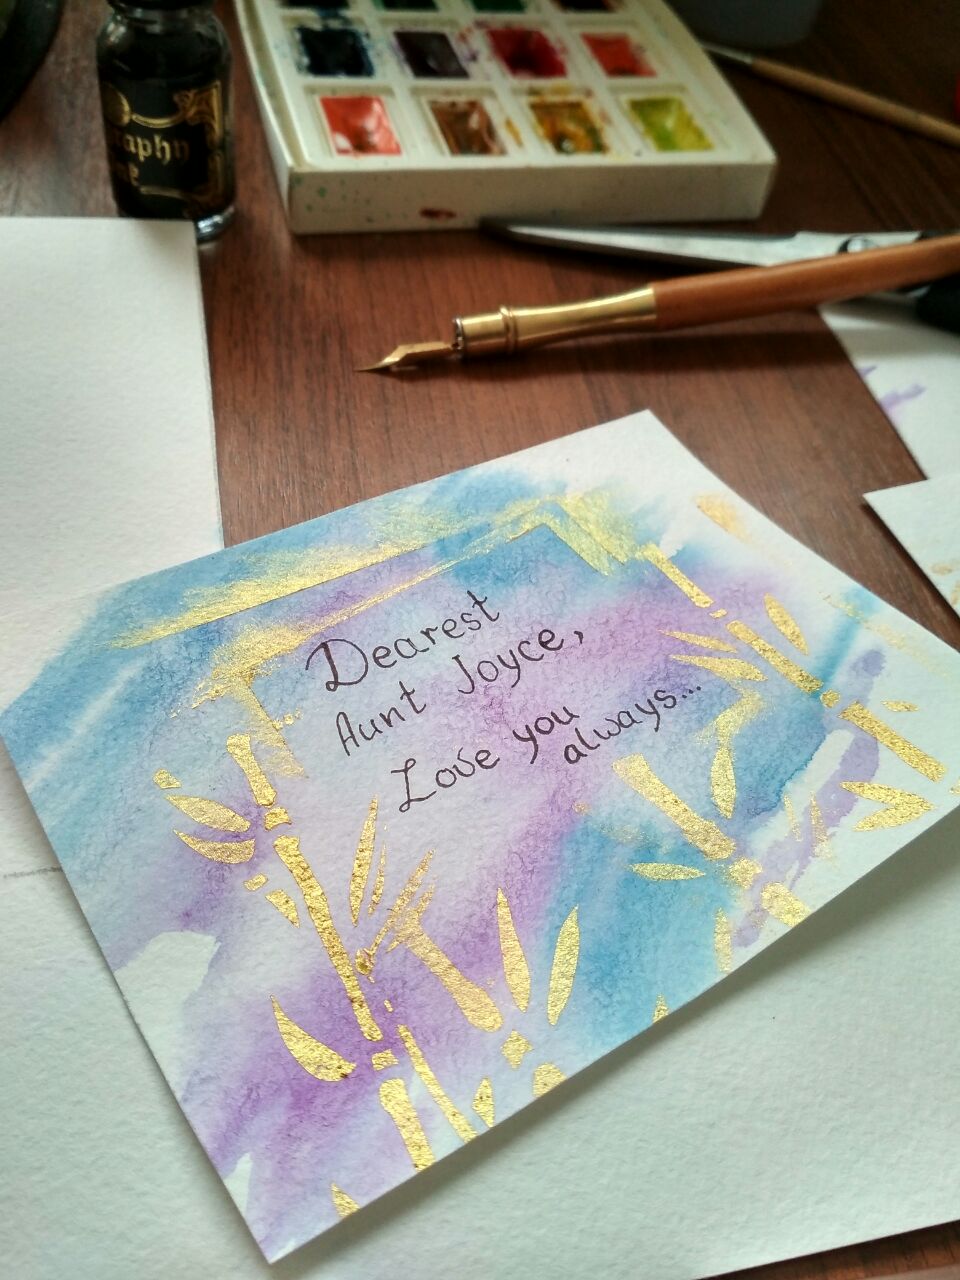 Dearest
Aunt Joyce,
Love you
always...